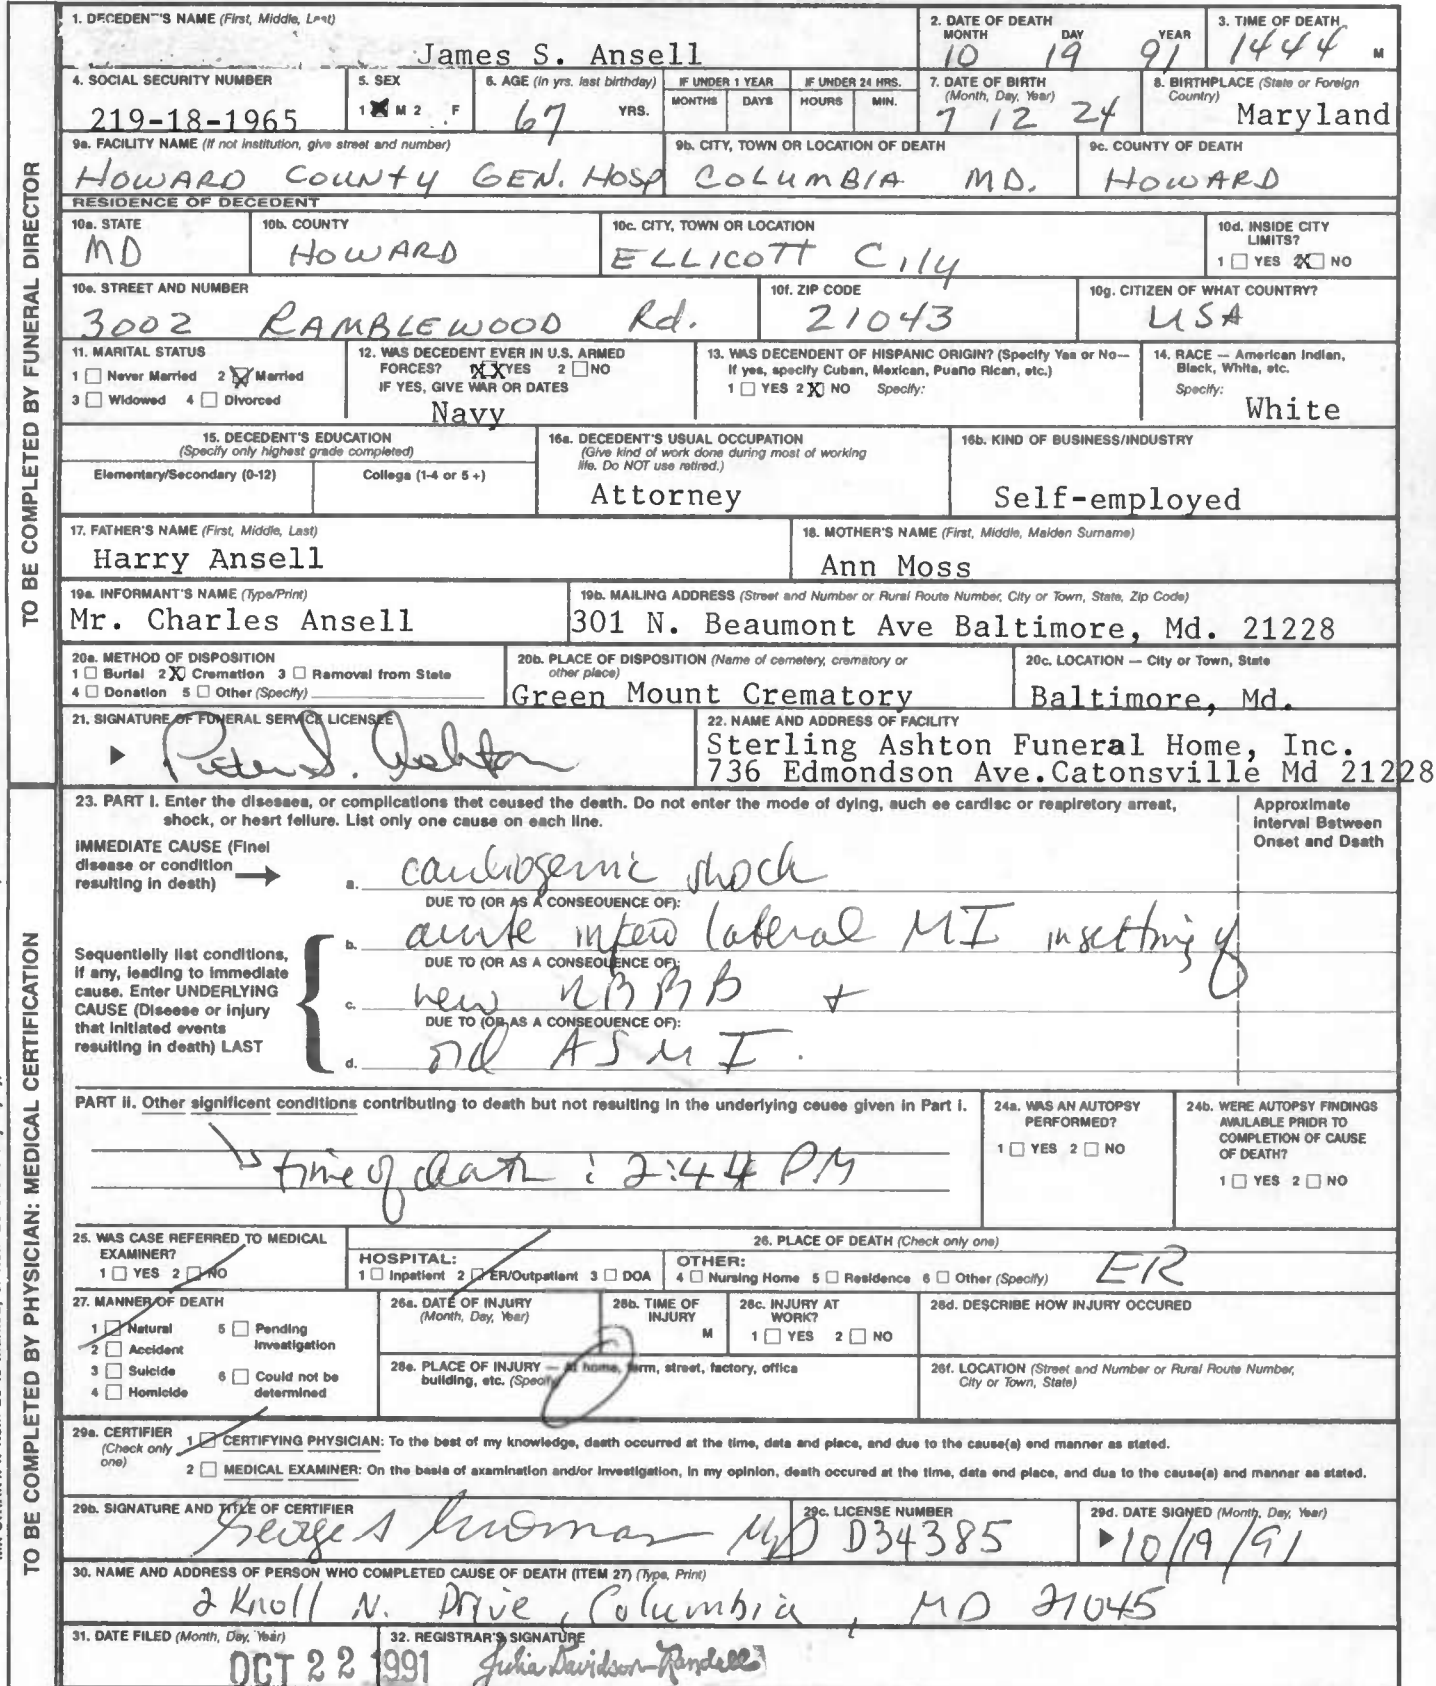 1. DECEDENT'S NAME (First, Middle, Last) James S. Ansell
2. DATE OF DEATH MONTH DAY YEAR 10 19 91
3. TIME OF DEATH 1444 M
4. SOCIAL SECURITY NUMBER 219-18-1965
5. SEX 1 M 2 F
6. AGE (In yrs. last birthday) 67 YRS.
IF UNDER 1 YEAR MONTHS DAYS
IF UNDER 24 HRS. HOURS MIN.
7. DATE OF BIRTH (Month, Day, Year) 7 12 24
8. BIRTHPLACE (State or Foreign Country) Maryland
9a. FACILITY NAME (If not institution, give street and number) HOWARD COUNTY GEN. HOSP
9b. CITY, TOWN OR LOCATION OF DEATH COLUMBIA MD.
9c. COUNTY OF DEATH HOWARD
RESIDENCE OF DECEDENT
10a. STATE MD
10b. COUNTY HOWARD
10c. CITY, TOWN OR LOCATION ELLICOTT CITY
10d. INSIDE CITY LIMITS? 1 YES 2 X NO
10e. STREET AND NUMBER 3002 RAMBLEWOOD Rd.
10f. ZIP CODE 21043
10g. CITIZEN OF WHAT COUNTRY? USA
11. MARITAL STATUS
1 Never Married 2 X Married
3 Widowed 4 Divorced
12. WAS DECEDENT EVER IN U.S. ARMED FORCES? 1 XX YES 2 NO
IF YES, GIVE WAR OR DATES
Navy
13. WAS DECENDENT OF HISPANIC ORIGIN? (Specify Yes or No—
If yes, specify Cuban, Mexican, Puerto Rican, etc.)
1 YES 2 X NO Specify:
14. RACE — American Indian, Black, White, etc.
Specify: White
15. DECEDENT'S EDUCATION
(Specify only highest grade completed)
Elementary/Secondary (0-12) College (1-4 or 5+)
16a. DECEDENT'S USUAL OCCUPATION
(Give kind of work done during most of working
life. Do NOT use retired.)
Attorney
16b. KIND OF BUSINESS/INDUSTRY
Self-employed
17. FATHER'S NAME (First, Middle, Last)
Harry Ansell
18. MOTHER'S NAME (First, Middle, Maiden Surname)
Ann Moss
19a. INFORMANT'S NAME (Type/Print)
Mr. Charles Ansell
19b. MAILING ADDRESS (Street and Number or Rural Route Number, City or Town, State, Zip Code)
301 N. Beaumont Ave Baltimore, Md. 21228
20a. METHOD OF DISPOSITION
1 Burial 2 X Cremation 3 Removal from State
4 Donation 5 Other (Specify)
20b. PLACE OF DISPOSITION (Name of cemetery, crematory or
other place)
Green Mount Crematory
20c. LOCATION — City or Town, State
Baltimore, Md.
21. SIGNATURE OF FUNERAL SERVICE LICENSEE
22. NAME AND ADDRESS OF FACILITY
Sterling Ashton Funeral Home, Inc.
736 Edmondson Ave.Catonsville Md 21228
TO BE COMPLETED BY FUNERAL DIRECTOR
23. PART I. Enter the diseases, or complications that caused the death. Do not enter the mode of dying, such as cardiac or respiratory arrest,
shock, or heart failure. List only one cause on each line.
Approximate
Interval Between
Onset and Death
IMMEDIATE CAUSE (Final
disease or condition
resulting in death)
a. cardiogenic shock
DUE TO (OR AS A CONSEQUENCE OF):
Sequentially list conditions,
if any, leading to immediate
cause. Enter UNDERLYING
CAUSE (Disease or injury
that initiated events
resulting in death) LAST
b. acute infero lateral MI in setting of
DUE TO (OR AS A CONSEQUENCE OF):
c. new RBBB +
DUE TO (OR AS A CONSEQUENCE OF):
d. old ASMI.
PART II. Other significant conditions contributing to death but not resulting in the underlying cause given in Part I.
time of death : 2:44 PM
24a. WAS AN AUTOPSY
PERFORMED?
1 YES 2 NO
24b. WERE AUTOPSY FINDINGS
AVAILABLE PRIOR TO
COMPLETION OF CAUSE
OF DEATH?
1 YES 2 NO
25. WAS CASE REFERRED TO MEDICAL
EXAMINER?
1 YES 2 NO
26. PLACE OF DEATH (Check only one)
HOSPITAL:
1 Inpatient 2 ER/Outpatient 3 DOA
OTHER:
4 Nursing Home 5 Residence 6 Other (Specify) ER
27. MANNER OF DEATH
1 Natural 5 Pending Investigation
2 Accident
3 Suicide 6 Could not be determined
4 Homicide
28a. DATE OF INJURY
(Month, Day, Year)
28b. TIME OF
INJURY
M
28c. INJURY AT
WORK?
1 YES 2 NO
28d. DESCRIBE HOW INJURY OCCURED
28e. PLACE OF INJURY — At home, farm, street, factory, office
building, etc. (Specify)
28f. LOCATION (Street and Number or Rural Route Number,
City or Town, State)
29a. CERTIFIER
(Check only
one)
1 CERTIFYING PHYSICIAN: To the best of my knowledge, death occurred at the time, date and place, and due to the cause(s) and manner as stated.
2 MEDICAL EXAMINER: On the basis of examination and/or investigation, in my opinion, death occured at the time, date and place, and due to the cause(s) and manner as stated.
29b. SIGNATURE AND TITLE OF CERTIFIER
George MD
29c. LICENSE NUMBER
D34385
29d. DATE SIGNED (Month, Day, Year)
10/19/91
30. NAME AND ADDRESS OF PERSON WHO COMPLETED CAUSE OF DEATH (ITEM 27) (Type, Print)
2 Knoll N. Drive, Columbia, MD 21045
31. DATE FILED (Month, Day, Year)
OCT 22 1991
32. REGISTRAR'S SIGNATURE
Julia Davidson-Randell
TO BE COMPLETED BY PHYSICIAN: MEDICAL CERTIFICATION